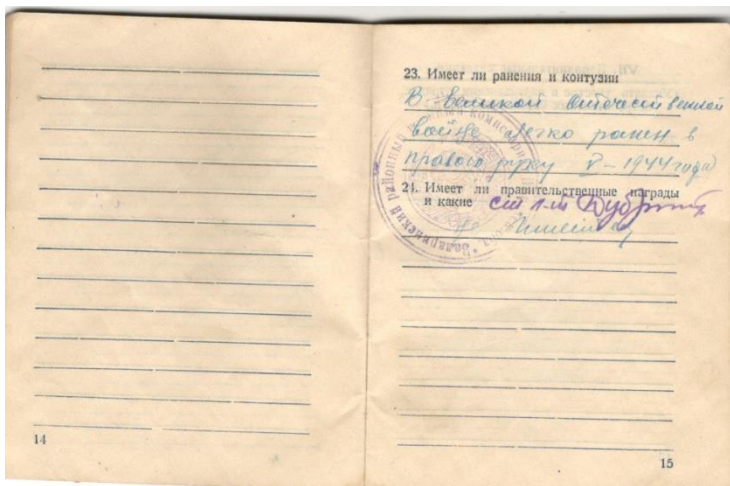 14
23. Имеет ли ранения и контузии
В великой отечественной
войне легко ранен в
правою руку V – 1944 года
24. Имеет ли правительственные награды
и какие ст л-т
Не имеет
Заларинский районный военный комиссариат
15